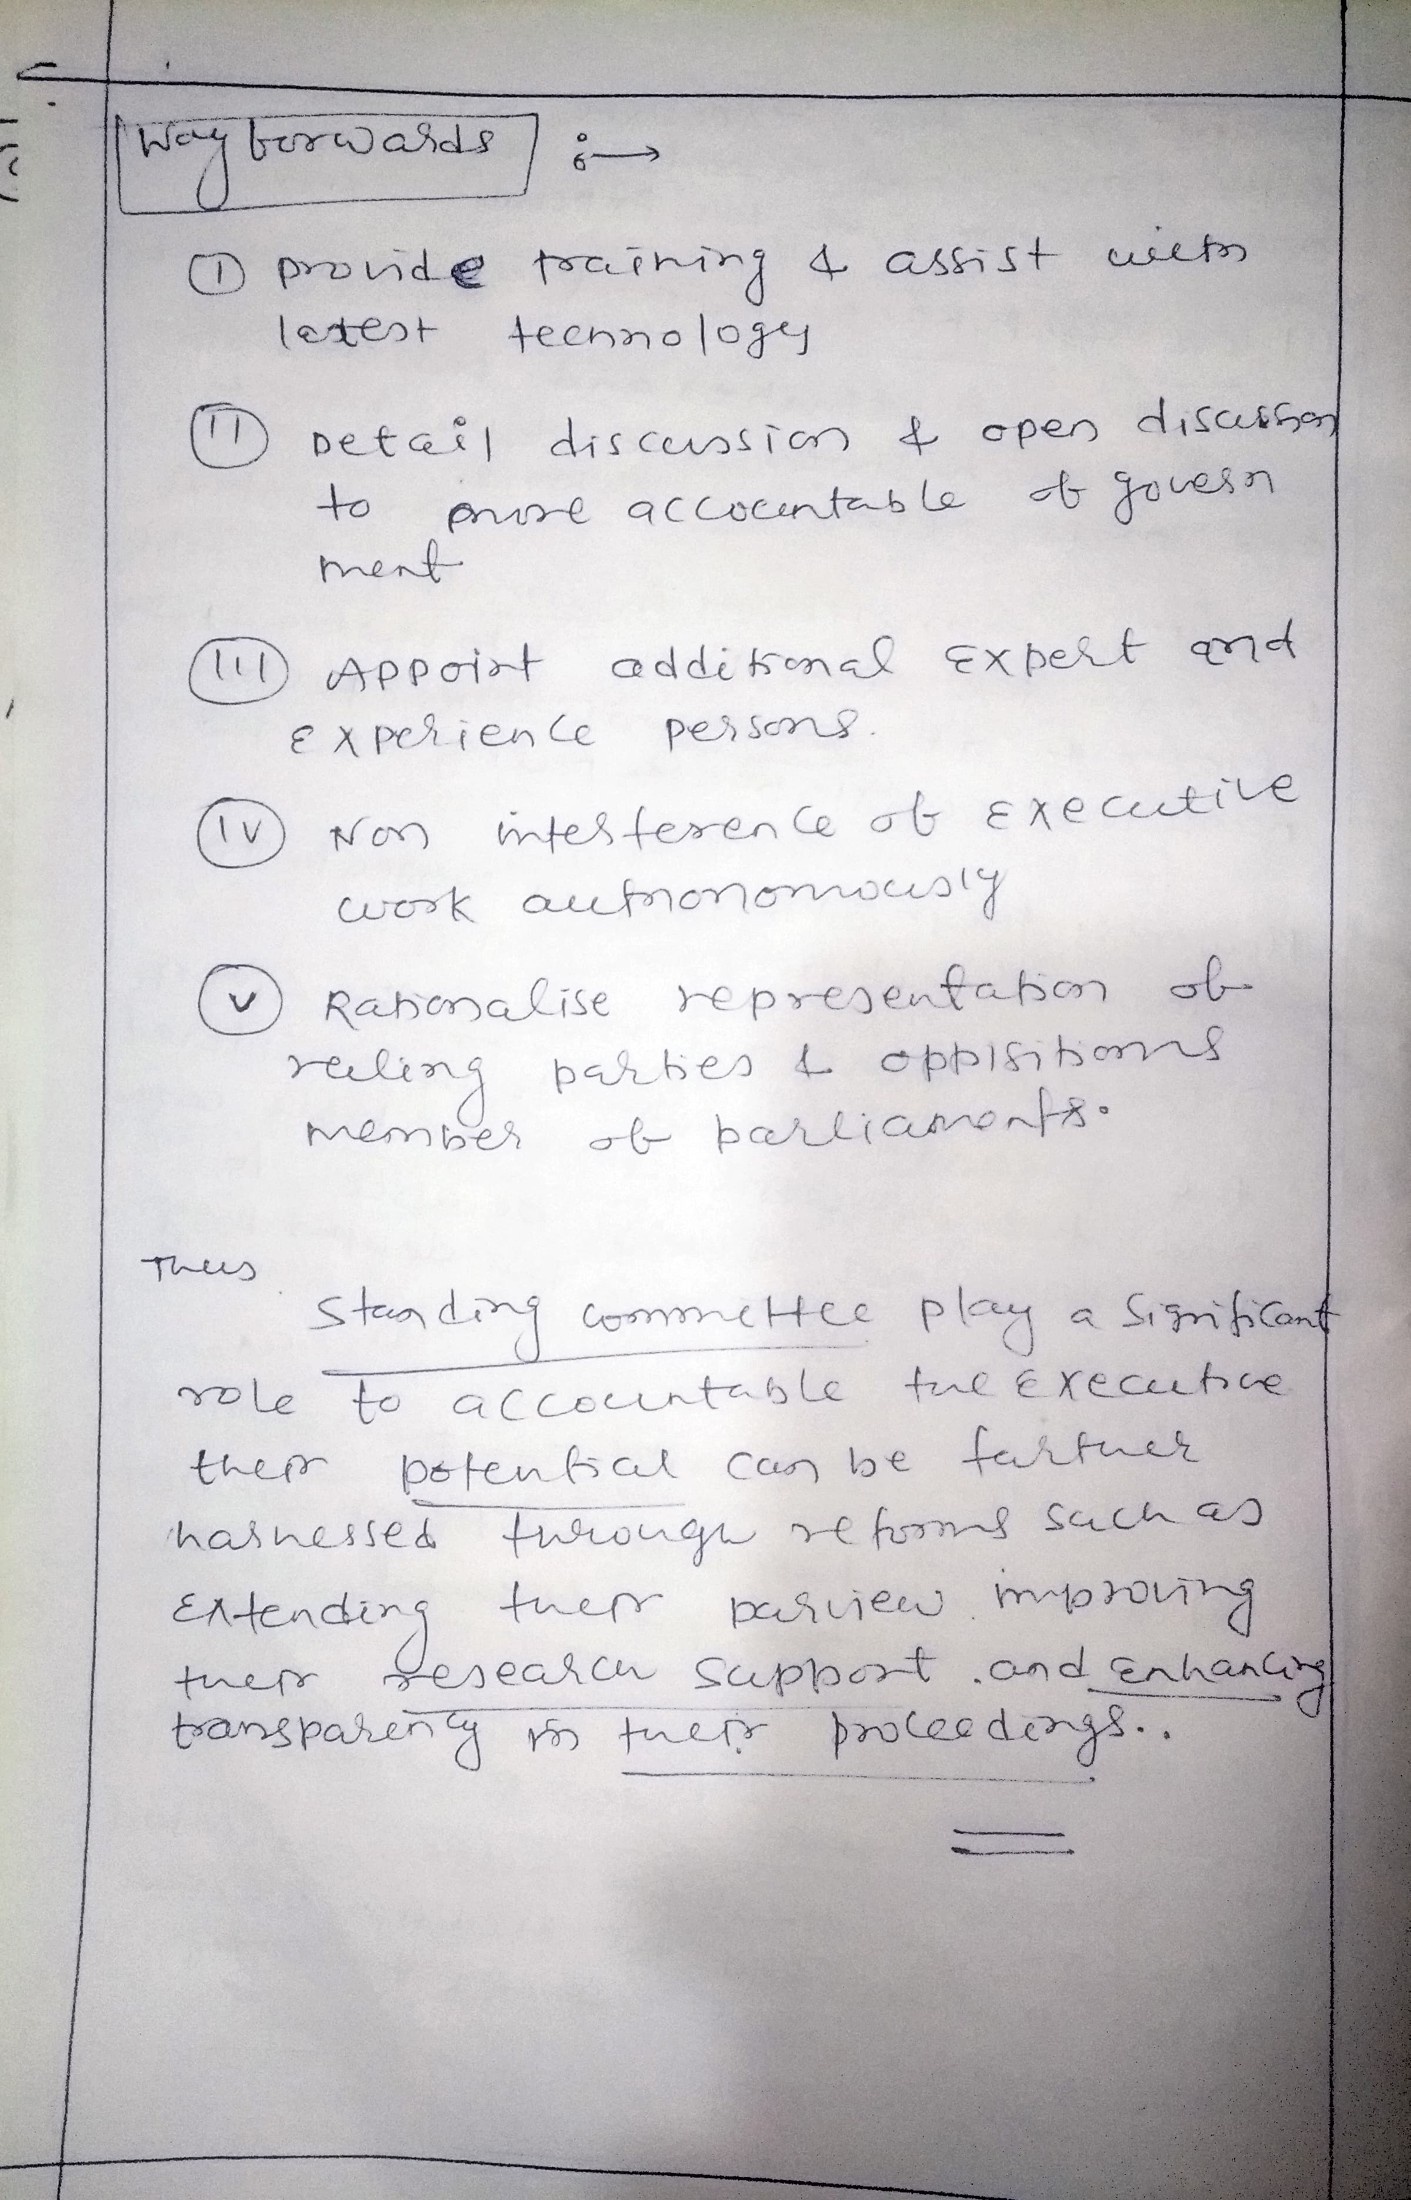 Way forwards :→
① provide training & assist with
latest technology
(II) Detail discussion & open discussion
to more accountable of govern
ment
(III) Appoint additional Expert and
Experience persons.
(IV) Non interference of Executive
work autnonomously
(V) Rationalise representation of
ruling parties & oppisitionns
member of parliaments.
Thus
Standing committee play a significant
role to accountable the Executive
their potential can be further
harnessed through reforms such as
Extending their purview. improving
their research support . and Enhancing
transparency in their proceedings..